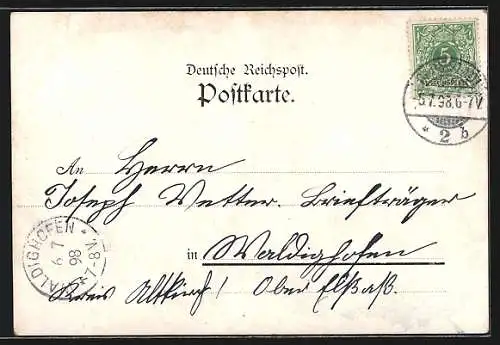 Deutsche Reichspost.
Postkarte.
5
5.7.98.6-7V.
* 2 b
An Herrn
Joseph Vetter. Briefträger
in Waldighofen
Kreis Altkirch / Ober Elsaß.
WALDIGHOFEN
6 7
98
*7-8V*